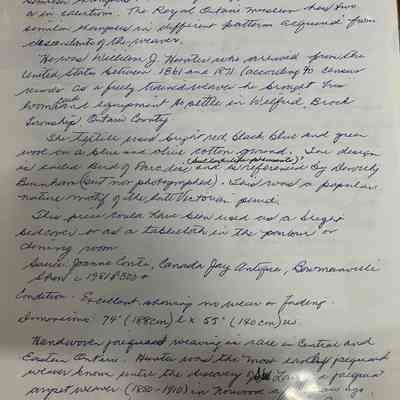 similar examples
or in selection. The Royal Ontario Museum has two
similar examples in different pattern acquired from
descendents of the weaver.
He was William J. Hunter who arrived from the
United States between 1861 and 1871 (according to census
records as a fully trained weaver he brought his
loom and equipment to settle in Melford, Brock
Township Ontario County
The textile used bright red black blue and green
wool on a blue and olive cotton ground. The design
is called Bird of Paradise (but looks like pheasants) and is referenced by Dorothy
Burnham (but not photographed). This was a popular
nature motif of the late Victorian period.
This piece could have been used as a single
bedcover or as a tablecloth in the parlour or
dining room
Source: Joanne Conti, Canada Jay Antiques, Bowmanville
Show c 1981 $300+
Condition: Excellent showing no wear or fading.
Dimensions: 74" (188cm) l x 55" (140cm) w.
Handwoven jacquard weaving is rare in Central and
Eastern Ontario. Hunter was the most easterly jacquard
weaver known until the discovery of a jacquard
carpet weaver (1880-1910) in Norwood